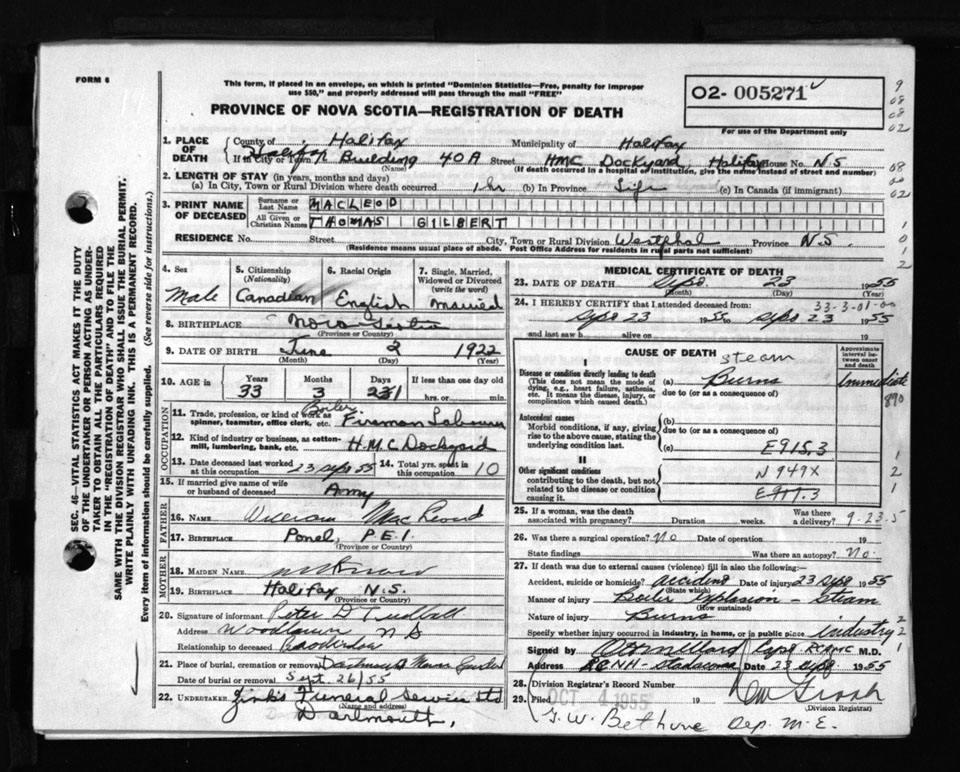 FORM 6
This form, if placed in an envelope, on which is printed "Dominion Statistics—Free, penalty for improper
use $50," and properly addressed will pass through the mail "FREE"
PROVINCE OF NOVA SCOTIA—REGISTRATION OF DEATH
02- 005271
For use of the Department only
1. PLACE OF DEATH
County of Halifax Municipality of Halifax
If in City or Town Building 40A Street HMC Dockyard, Halifax House No. N.S
(Name) (If death occurred in a hospital of institution, give the name instead of street and number)
2. LENGTH OF STAY (in years, months and days)
(a) In City, Town or Rural Division where death occurred 1 hr (b) In Province Life (c) In Canada (if immigrant)
3. PRINT NAME OF DECEASED
Surname or Last Name MACLEOD
All Given or Christian Names THOMAS GILBERT
RESIDENCE No. Street City, Town or Rural Division Westphal Province N.S.
(Residence means usual place of abode. Post Office Address for residents in rural parts not sufficient)
4. Sex Male
5. Citizenship (Nationality) Canadian
6. Racial Origin English
7. Single, Married, Widowed or Divorced (write the word) Married
8. BIRTHPLACE Nova Scotia
(Province or Country)
9. DATE OF BIRTH June 2 1922
(Month) (Day) (Year)
10. AGE in Years 33 Months 3 Days 21 If less than one day old
hrs. or min.
OCCUPATION
11. Trade, profession, or kind of work as spinner, teamster, office clerk, etc. Boiler Fireman Labourer
12. Kind of industry or business, as cotton-mill, lumbering, bank, etc. H.M.C Dockyard
13. Date deceased last worked at this occupation 23 Sept 55
14. Total yrs. spent in this occupation 10
15. If married give name of wife or husband of deceased Amy
FATHER
16. NAME William MacLeod
17. BIRTHPLACE P.E.I.
(Province or Country)
MOTHER
18. MAIDEN NAME
19. BIRTHPLACE Halifax N.S.
(Province or Country)
20. Signature of informant Peter D
Address Woodlawn N S
Relationship to deceased
21. Place of burial, cremation or removal Dartmouth
Date of burial or removal Sept. 26/55
22. UNDERTAKER Zink's Funeral Service Ltd
(Name and address)
Dartmouth,
MEDICAL CERTIFICATE OF DEATH
23. DATE OF DEATH Sept. 23 1955
(Month) (Day) (Year)
24. I HEREBY CERTIFY that I attended deceased from: 33-3-01-00
Sept 23 1955 to Sept 23 1955
and last saw h alive on 19
CAUSE OF DEATH
Approximate interval between onset and death
I
Disease or condition directly leading to death
(This does not mean the mode of dying, e.g., heart failure, asthenia, etc. It means the disease, injury, or complication which caused death.)
(a) steam Burns Immediate
due to (or as a consequence of) 890
Antecedent causes
Morbid conditions, if any, giving rise to the above cause, stating the underlying condition last.
(b)
due to (or as a consequence of)
(c) E915.3
II
Other significant conditions
contributing to the death, but not related to the disease or condition causing it.
N949X
25. If a woman, was the death associated with pregnancy? Duration weeks. Was there a delivery? 9-23-5
26. Was there a surgical operation? No Date of operation 19
State findings Was there an autopsy? No.
27. If death was due to external causes (violence) fill in also the following:—
Accident, suicide or homicide? Accident Date of injury 23 Sept 1955
(State which)
Manner of injury Boiler Explosion - Steam
(How sustained)
Nature of injury Burns
Specify whether injury occurred in industry, in home, or in public place industry
Signed by Capt RCAMC M.D.
Address RCNH - Stadacona Date 23 Sept 1955
28. Division Registrar's Record Number
29. Filed OCT 4 1955 19
(Division Registrar)
G.W. Bethune Dep. M.E.
SEC. 46—VITAL STATISTICS ACT MAKES IT THE DUTY
OF THE UNDERTAKER OR PERSON ACTING AS UNDER-
TAKER TO OBTAIN ALL THE PARTICULARS REQUIRED
IN THE "REGISTRATION OF DEATH" AND TO FILE THE
SAME WITH THE DIVISION REGISTRAR WHO SHALL ISSUE THE BURIAL PERMIT.
WRITE PLAINLY WITH UNFADING INK. THIS IS A PERMANENT RECORD.
Every item of information should be carefully supplied. (See reverse side for instructions.)